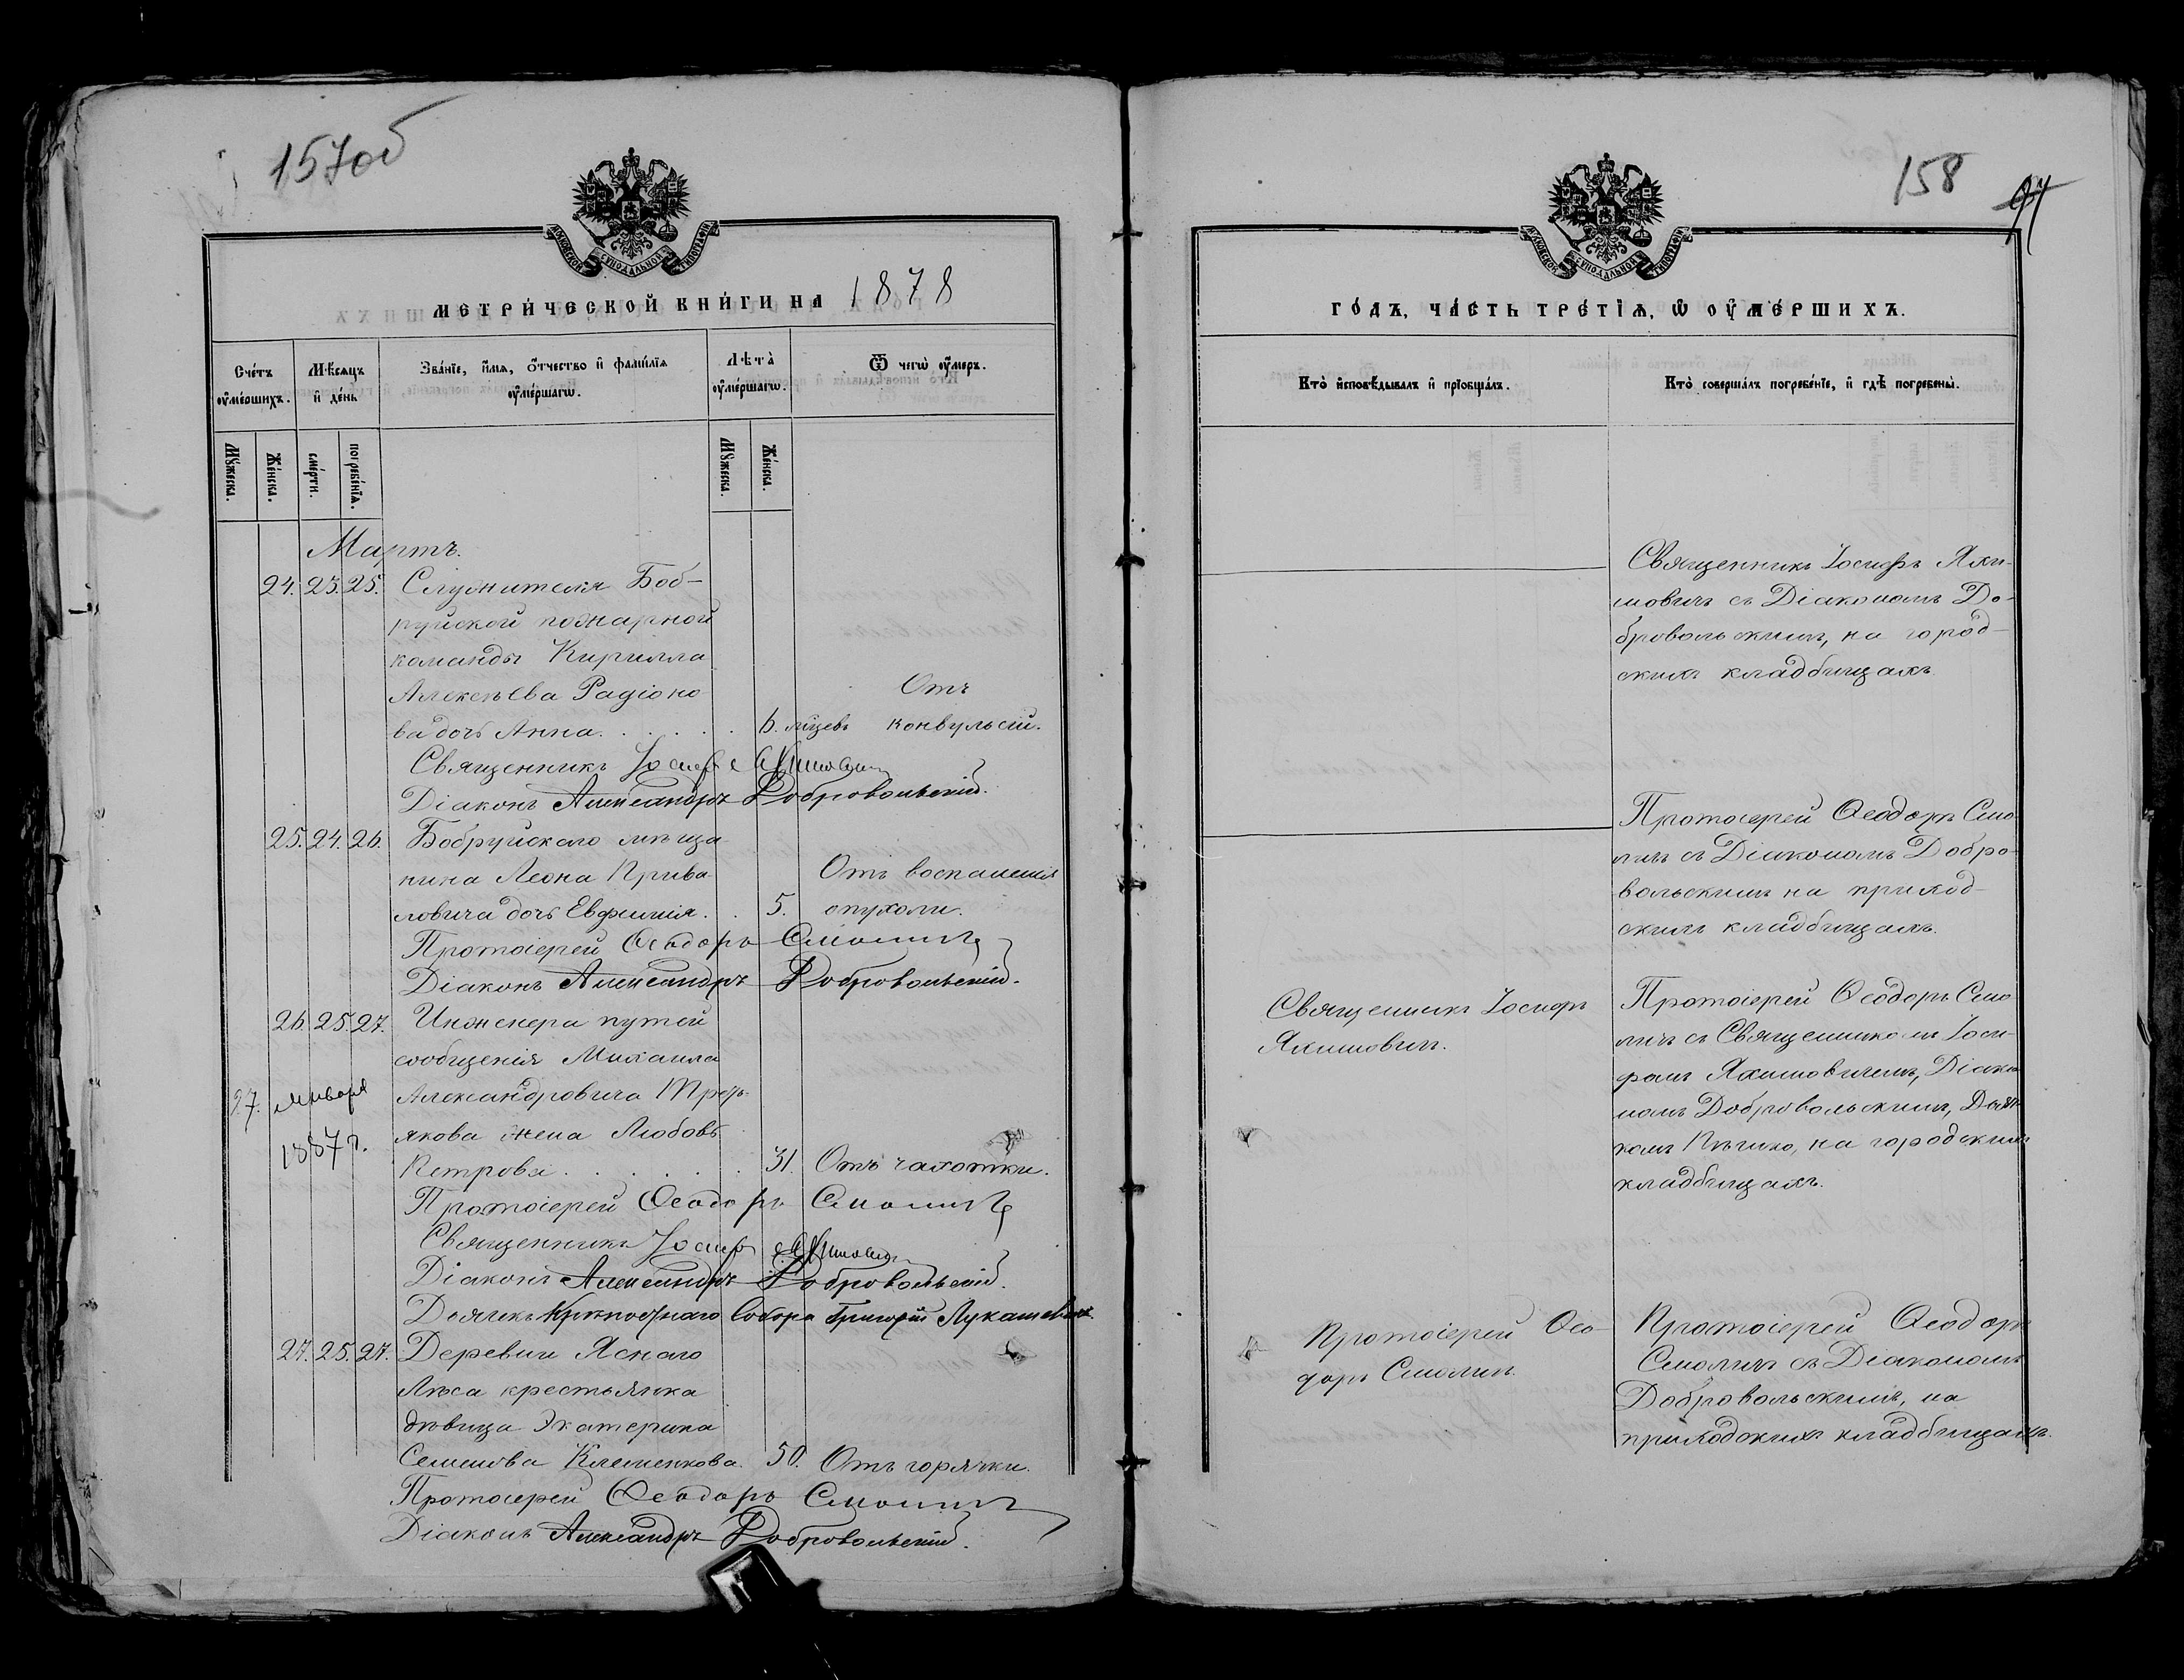 157об
МОСКОВСКОЙ СѴНОДАЛЬНОЙ ТИПОГРАФІИ
МЕТРИ́ЧЕСКОЙ КНИ́ГИ НА 1878
Сче́тъ оу҆ме́ршихъ.
Мѣ́сяцъ и҆ де́нь
Зва́нїе, и҆́мѧ, ѻ҆́тчество и҆ фами́лїѧ оу҆ме́ршагѡ.
Лѣта̀ оу҆ме́ршагѡ.
Ѿ чегѡ̀ оу҆́меръ.
Мꙋ́жеска.
Же́нска.
сме́рти.
погребе́нїѧ.
Мꙋ́жеска.
Же́нска.
Мартъ.
24. 23. 25. Служителя Боб-
руйской пожарной
команды Кирилла
Алексѣева Радіоно
ва дочь Анна. . . . . . 6. мѣцевъ
Отъ
конвульсій.
Священникъ Іосифъ Яхимовичъ
Діаконъ Александръ Добровольскій.
25. 24. 26. Бобруйскаго мѣща
нина Леона Прива
ловича дочь Евфимія. . 5.
Отъ воспаленія
опухоли.
Протоіерей Ѳеодоръ Смоличъ
Діаконъ Александръ Добровольскій.
26. 25. 27. Инженера путей
сообщенія Михаила
Александровича Треть-
якова жена Любовь
Петрова. . . . . . . 31. Отъ чахотки.
27. января
1887 г.
Протоіерей Ѳеодоръ Смоличъ
Священникъ Іосифъ Яхимовичъ
Діаконъ Александръ Добровольскій.
Дьячекъ Крѣпостнаго Собора Григорій Лукашевичъ.
27. 25. 27. Деревни Яснаго
Лѣса крестьянка
дѣвица Экатерина
Семенова Клеменкова. 50. Отъ горячки.
Протоіерей Ѳеодоръ Смоличъ
Діаконъ Александръ Добровольскій.
158
МОСКОВСКОЙ СѴНОДАЛЬНОЙ ТИПОГРАФІИ
ГО́ДЪ, ЧА́СТЬ ТРЕ́ТЇѦ, Ѡ҆ ОУ҆МЕ́РШИХЪ.
Кто̀ и҆сповѣ́дывалъ и҆ прїѡбща́лъ.
Кто̀ соверша́лъ погребе́нїе, и҆ гдѣ̀ погребены̀.
Священникъ Іосифъ Яхи-
мовичъ съ Діакономъ До-
бровольскимъ, на город-
скихъ кладбищахъ.
Протоіерей Ѳеодоръ Смо
личъ съ Діакономъ Добро-
вольскимъ на приход-
скихъ кладбищахъ.
Священникъ Іосифъ
Яхимовичъ.
Протоіерей Ѳеодоръ Смо
личъ съ Священникомъ Іоси-
фомъ Яхимовичемъ, Діако
номъ Добровольскимъ, Дьяч-
комъ на городскихъ
кладбищахъ.
Протоіерей Ѳео-
доръ Смоличъ.
Протоіерей Ѳеодоръ
Смоличъ съ Діакономъ
Добровольскимъ, на
приходскихъ кладбищахъ.